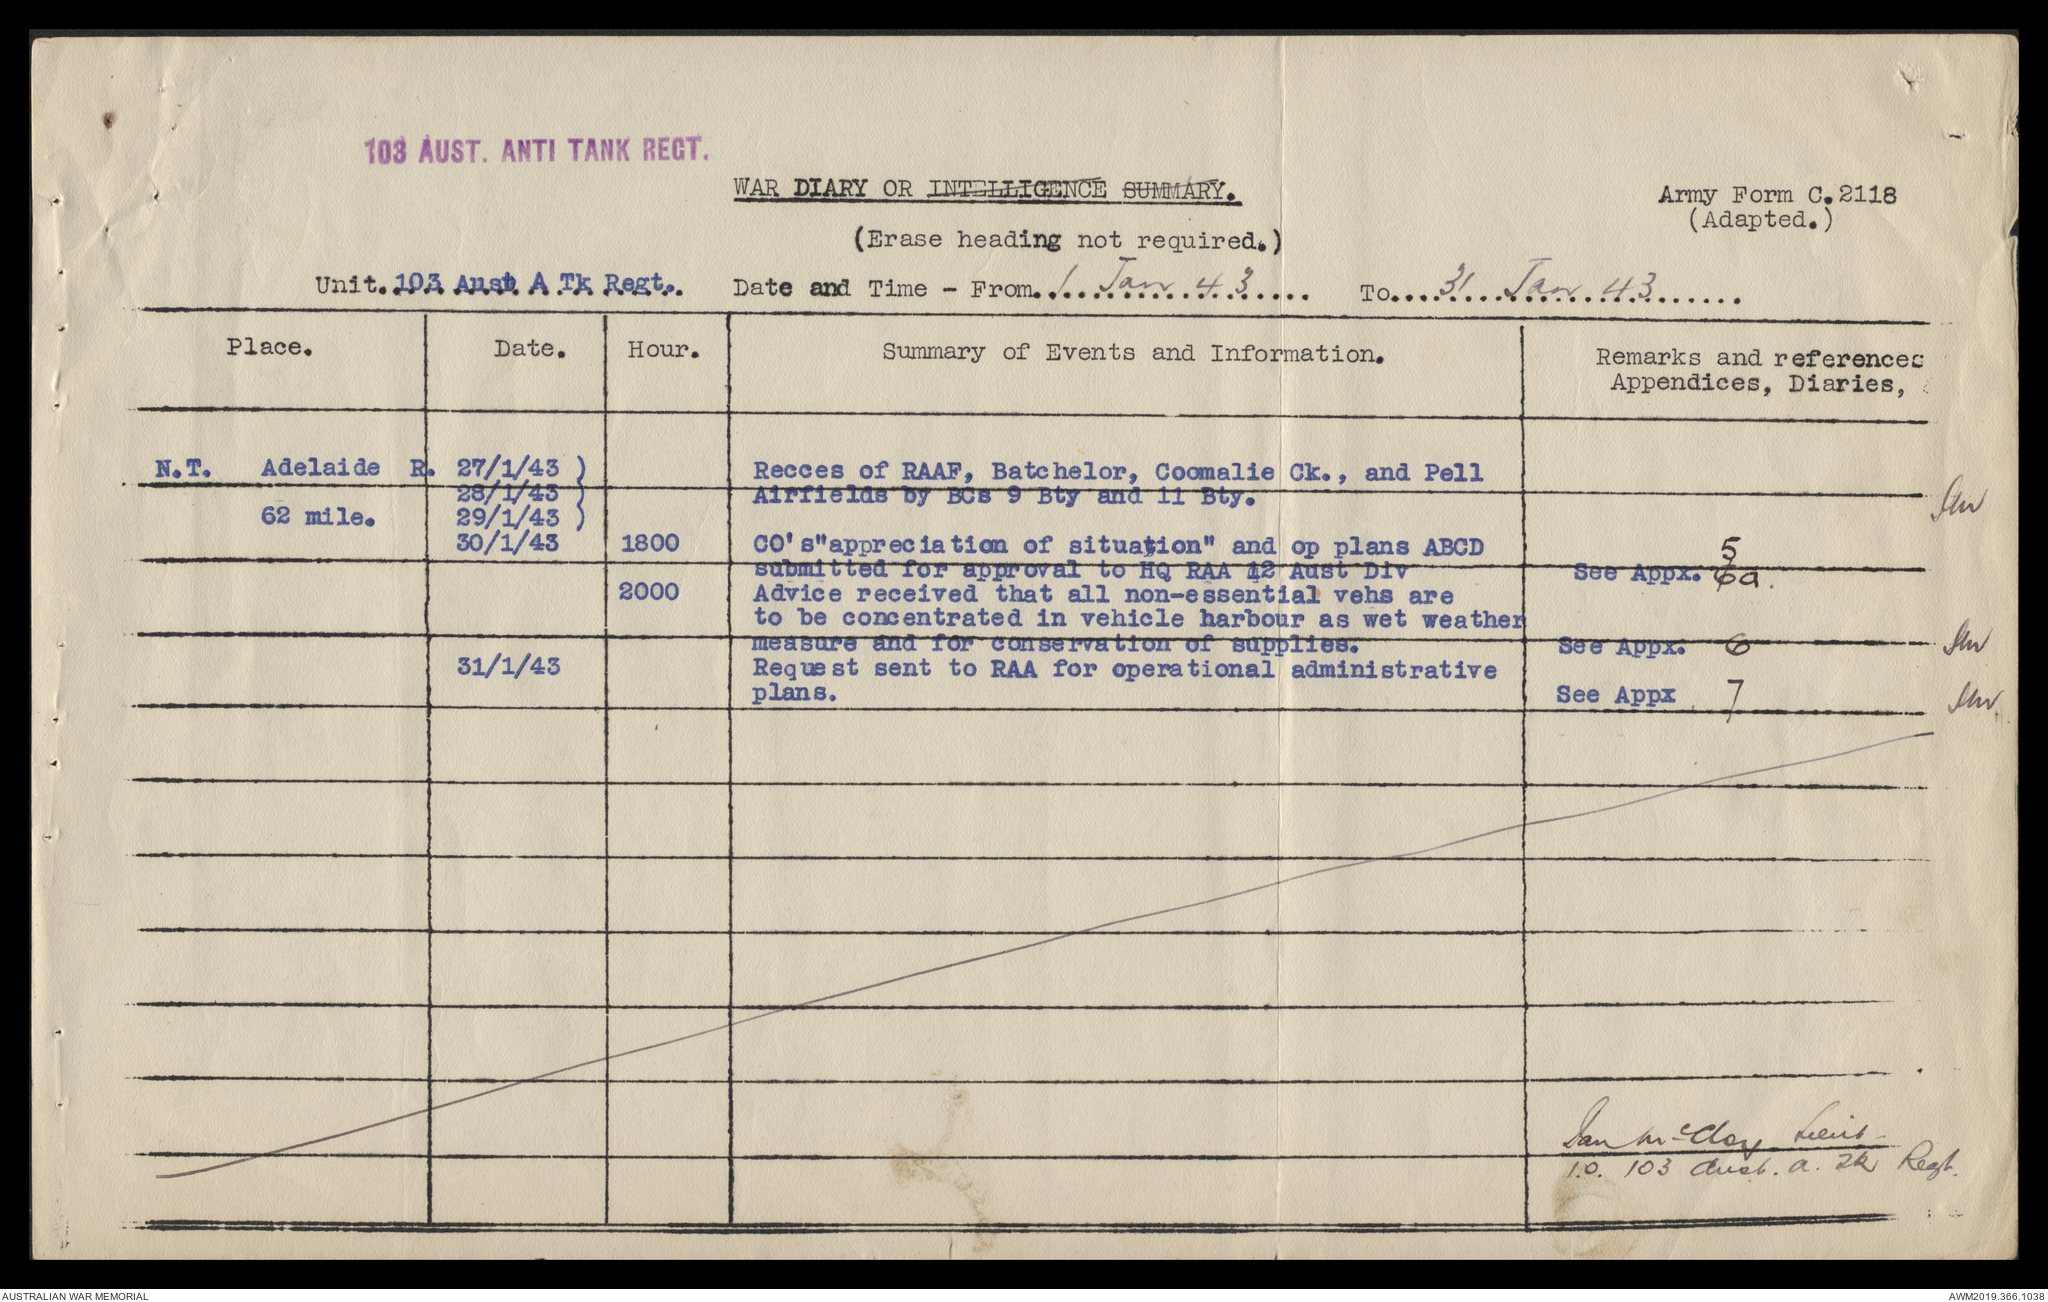 103 AUST. ANTI TANK REGT.
WAR DIARY OR INTELLIGENCE SUMMARY.
Army Form C.2118
(Adapted.)
(Erase heading not required.)
Unit. 103 Aust A Tk Regt. Date and Time - From. 1 Jan 43 To. 31 Jan 43
Place. Date. Hour. Summary of Events and Information. Remarks and references
Appendices, Diaries,
N.T. Adelaide R. 27/1/43 ) Recces of RAAF, Batchelor, Coomalie Ck., and Pell
28/1/43 ) Airfields by BCs 9 Bty and 11 Bty.
62 mile. 29/1/43 )
30/1/43 1800 CO's "appreciation of situation" and op plans ABCD 5
submitted for approval to HQ RAA 12 Aust Div See Appx. 6a.
2000 Advice received that all non-essential vehs are
to be concentrated in vehicle harbour as wet weather
measure and for conservation of supplies. See Appx. 6
31/1/43 Request sent to RAA for operational administrative
plans. See Appx 7
Ian McCloy Lieut
I.O. 103 Aust. A. Tk Regt.
AUSTRALIAN WAR MEMORIAL AWM2019.366.1038